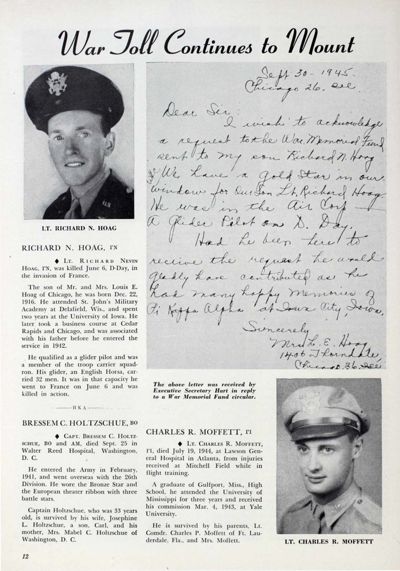 War Toll Continues to Mount
LT. RICHARD N. HOAG
RICHARD N. HOAG, ΓN
♦ LT. RICHARD NEVIN
HOAG, ΓN, was killed June 6, D-Day, in
the invasion of France.
The son of Mr. and Mrs. Louis E.
Hoag of Chicago, he was born Dec. 22,
1916. He attended St. John's Military
Academy at Delafield, Wis., and spent
two years at the University of Iowa. He
later took a business course at Cedar
Rapids and Chicago, and was associated
with his father before he entered the
service in 1942.
He qualified as a glider pilot and was
a member of the troop carrier squad-
ron. His glider, an English Horsa, car-
ried 32 men. It was in that capacity he
went to France on June 6 and was
killed in action.
ΠΚΑ
BRESSEM C. HOLTZSCHUE, BO
♦ CAPT. BRESSEM C. HOLTZ-
SCHUE, BO and AM, died Sept. 25 in
Walter Reed Hospital, Washington,
D. C.
He entered the Army in February,
1941, and went overseas with the 26th
Division. He wore the Bronze Star and
the European theater ribbon with three
battle stars.
Captain Holtzschue, who was 33 years
old, is survived by his wife, Josephine
L. Holtzschue, a son, Carl, and his
mother, Mrs. Mabel C. Holtzschue of
Washington, D. C.
12
Sept 30 - 1945.
Chicago 26. Ill.
Dear Sir,
I wish to acknowledge
a request to the War Memorial Fund
sent to my son Richard N. Hoag
We have a gold Star in our
window for Our Son Lt. Richard Hoag
He was in the Air Corp
A Glider Pilot on D. Day.
Had he been here to
receive the request he would
gladly have contributed as he
had many happy memories of
Pi Kappa Alpha at Iowa City, Iowa.
Sincerely,
Mrs L. E. Hoag
1406 Thorndale,
Chicago 26. Ill
The above letter was received by
Executive Secretary Hart in reply
to a War Memorial Fund circular.
CHARLES R. MOFFETT, ΓΙ
♦ LT. CHARLES R. MOFFETT,
ΓΙ, died July 19, 1944, at Lawson Gen-
eral Hospital in Atlanta, from injuries
received at Mitchell Field while in
flight training.
A graduate of Gulfport, Miss., High
School, he attended the University of
Mississippi for three years and received
his commission Mar. 4, 1943, at Yale
University.
He is survived by his parents, Lt.
Comdr. Charles P. Moffett of Ft. Lau-
derdale, Fla., and Mrs. Moffett.
LT. CHARLES R. MOFFETT